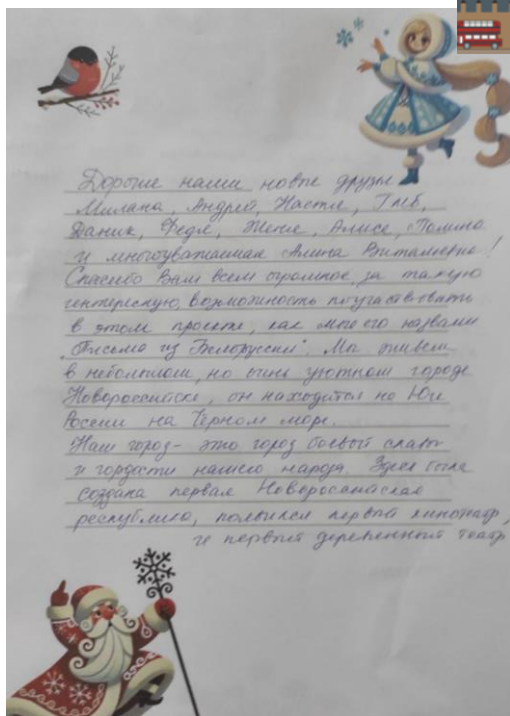 Дорогие наши новые друзья
Милана, Андрей, Настя, Глеб,
Даник, Федя, Женя, Алиса, Полина
и многоуважаемая Алина Витальевна!
Спасибо Вам всем огромное за такую
интересную возможность поучаствовать
в этом проекте, как мы его назвали
"Письмо из Белоруссии". Мы живем
в небольшом, но очень уютном городе
Новороссийске, он находится на Юге
России на Чёрном море.
Наш город - это город боевой славы
и гордости нашего народа. Здесь была
создана первая Новороссийская
республика, появился первый кинотеатр,
и первый деревянный театр